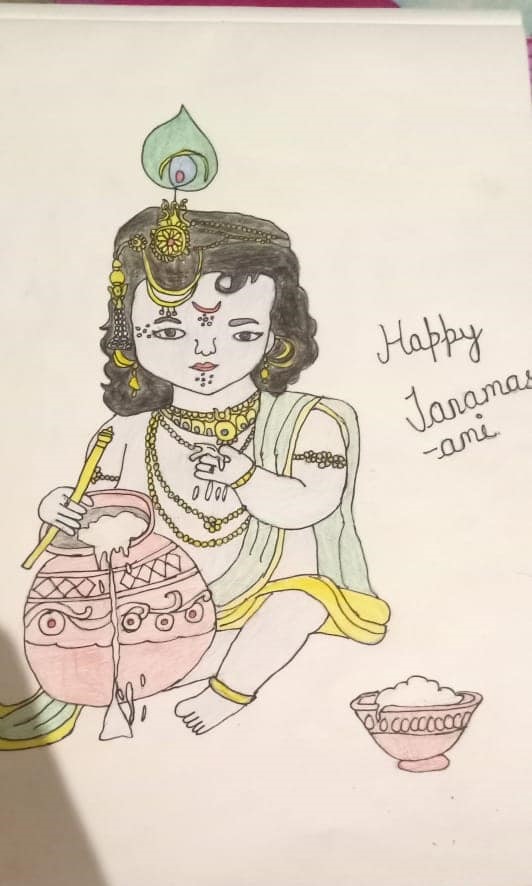 Happy
Janamas
-ami